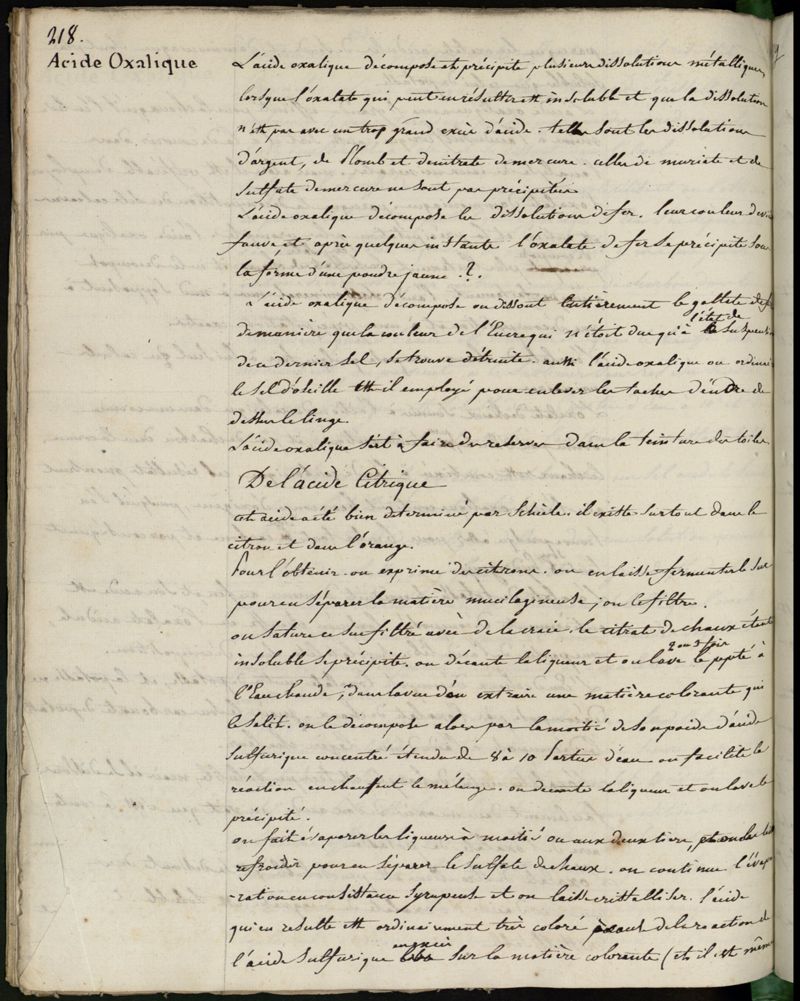 218.
Acide Oxalique
L'acide oxalique décompose et précipite plusieurs dissolutions métalliques,
lorsque l'oxalate qui peut en résulter est insoluble et que la dissolution
n'est pas avec un trop grand excès d'acide. telles sont les dissolutions
d'argent, de Plomb et de nitrate de mercure. celles de muriate et de
sulfate de mercure ne sont pas précipitées
L'acide oxalique décompose les dissolutions de fer. leur couleur devi
fauve et après quelques instants l'oxalate de fer se précipite sou
la forme d'une poudre jaune ?.
L'acide oxalique décompose ou dissout entièrement le gallate de f
de manière que la couleur de l'Encre qui n'étoit due qu'à l'état de suspens
de ce dernier sel, se trouve détruite. aussi l'acide oxalique ou ordinai
le sel d'oseille est il employé pour enlever les taches d'encre de
dessus le linge.
L'acide oxalique sert à faire des reserves dans la teinture des toiles
De l'acide Citrique
cet acide a été bien determiné par Schéele. il existe surtout dans le
citron et dans l'orange.
Pour l'obtenir on exprime des citrons. on en laisse fermenter le suc
pour en séparer la matière mucilagineuse, on le filtre.
on sature ce suc filtré avec de la craie. le citrate de chaux étant
insoluble se précipite. on décante la liqueur et on lave 2 ou 3 fois le ppté à
l'Eau chaude, dans la vue d'en extraire une matière colorante qui
le salit. on le décompose alors par la moitié de son poids d'acide
sulfurique concentré étendu de 8 à 10 parties d'eau on facilite la
réaction en chauffant le mélange. on décante la liqueur et on lave le
précipité.
on fait évaporer les liqueurs à moitié ou aux deux tiers, on la
refroidir pour en séparer le sulfate de chaux. on continue l'évapo
-ration en consistance syrupeuse et on laisse cristalliser. l'acide
qui en resulte est ordinairement très coloré de la reaction de
l'acide sulfurique en excès sur la matière colorante (et il est même